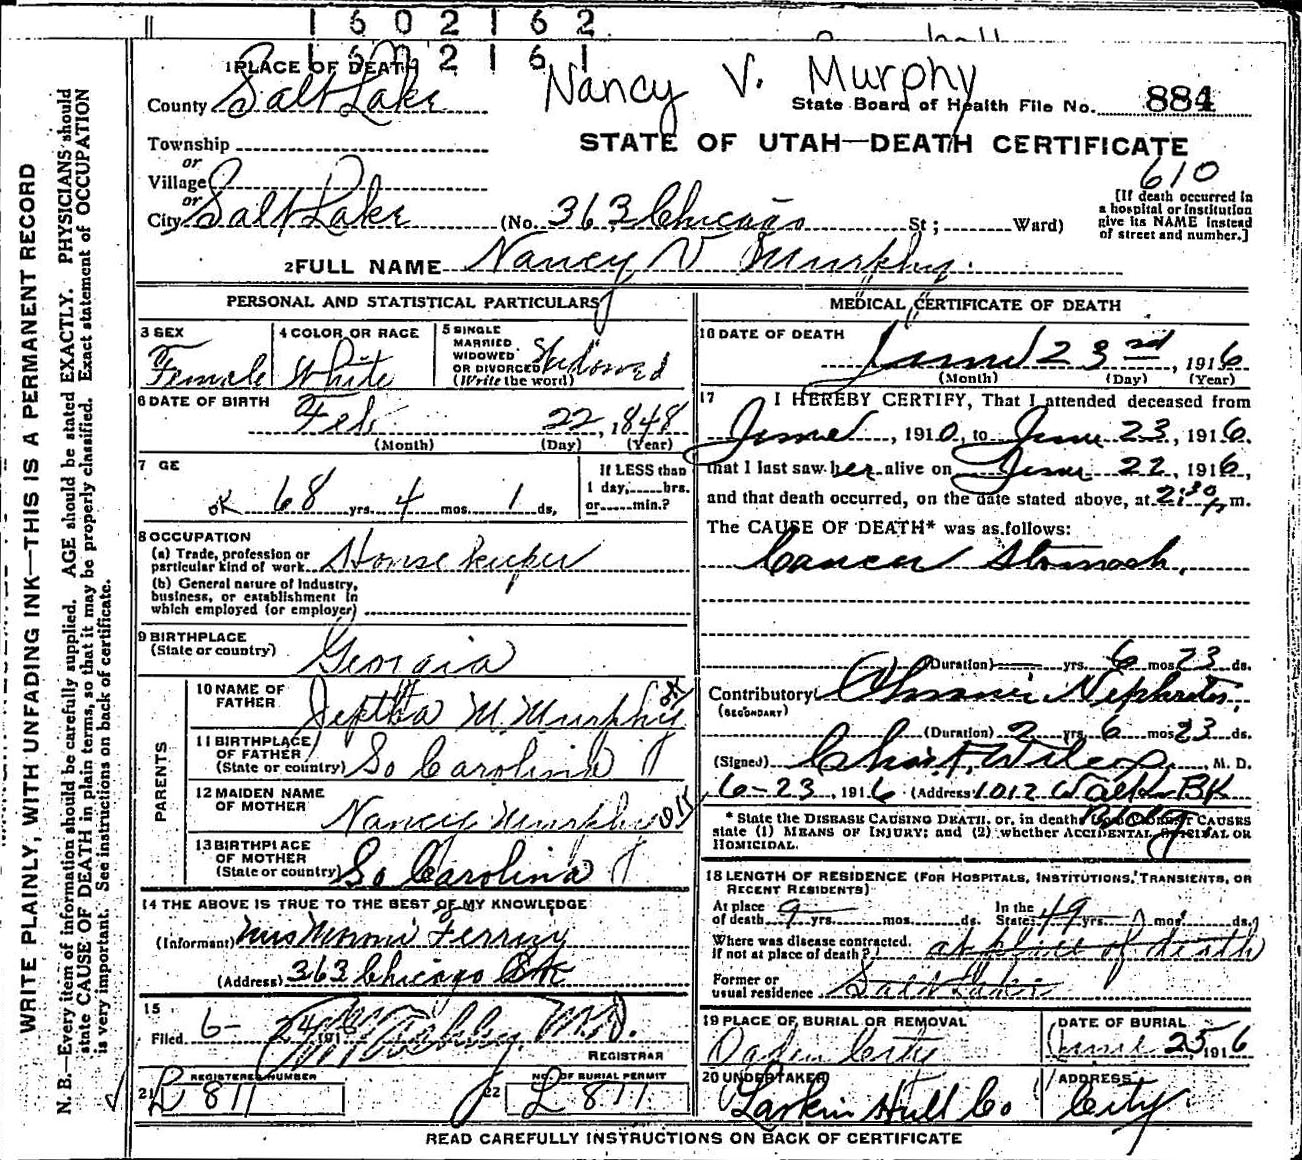 1602162
1602161
Nancy V. Murphy
1 PLACE OF DEATH
County Salt Lake
State Board of Health File No. 884
Township
STATE OF UTAH—DEATH CERTIFICATE
or
Village
610
or
City Salt Lake (No. 363 Chicago St; Ward)
[If death occurred in
a hospital or institution
give its NAME instead
of street and number.]
2 FULL NAME Nancy V Murphy.
PERSONAL AND STATISTICAL PARTICULARS
3 SEX
Female
4 COLOR OR RACE
White
5 SINGLE
MARRIED
WIDOWED
OR DIVORCED
(Write the word)
Widowed
6 DATE OF BIRTH
Feb 22, 1848
(Month) (Day) (Year)
7 GE
OK 68 yrs. 4 mos. 1 ds.
If LESS than
1 day, hrs.
or min.?
8 OCCUPATION
(a) Trade, profession or
particular kind of work House keeper
(b) General nature of industry,
business, or establishment in
which employed (or employer)
9 BIRTHPLACE
(State or country)
Georgia
PARENTS
10 NAME OF
FATHER
Jeptha M Murphy OK
11 BIRTHPLACE
OF FATHER
(State or country) So Carolina
12 MAIDEN NAME
OF MOTHER
Nancy Murphy OK
13 BIRTHPLACE
OF MOTHER
(State or country) So Carolina
14 THE ABOVE IS TRUE TO THE BEST OF MY KNOWLEDGE
(Informant) Mrs
(Address) 363 Chicago
15
Filed 6-24 191 M.D.
REGISTRAR
REGISTERED NUMBER
21 L 811
NO. OF BURIAL PERMIT
22 L 811
MEDICAL CERTIFICATE OF DEATH
16 DATE OF DEATH
June 23rd, 1916
(Month) (Day) (Year)
17 I HEREBY CERTIFY, That I attended deceased from
June, 1910, to June 23, 1916.
that I last saw her alive on June 22, 1916,
and that death occurred, on the date stated above, at 2:30 p m.
The CAUSE OF DEATH* was as follows:
Cancer Stomach.
(Duration) yrs. 6 mos 23 ds.
Contributory Chronic Nephritis,
(SECONDARY)
(Duration) 2 yrs. 6 mos 23 ds.
(Signed) Wilcox, M. D.
6-23, 1916 (Address) 1012 BK
Bldg
* State the DISEASE CAUSING DEATH, or, in deaths CAUSES
state (1) MEANS OF INJURY; and (2) whether ACCIDENTAL, SUICIDAL OR
HOMICIDAL.
18 LENGTH OF RESIDENCE (FOR HOSPITALS, INSTITUTIONS, TRANSIENTS, OR
RECENT RESIDENTS)
At place
of death 9 yrs. mos. ds.
In the
State 49 yrs. mos. ds.
Where was disease contracted,
if not at place of death? at place of death
Former or
usual residence Salt Lake
19 PLACE OF BURIAL OR REMOVAL
Ogden City
DATE OF BURIAL
June 25 1916
20 UNDERTAKER
Larkin Hull Co
ADDRESS
City
READ CAREFULLY INSTRUCTIONS ON BACK OF CERTIFICATE
WRITE PLAINLY, WITH UNFADING INK—THIS IS A PERMANENT RECORD
N. B.—Every item of information should be carefully supplied. AGE should be stated EXACTLY. PHYSICIANS should
state CAUSE OF DEATH in plain terms, so that it may be properly classified. Exact statement of OCCUPATION
is very important. See instructions on back of certificate.